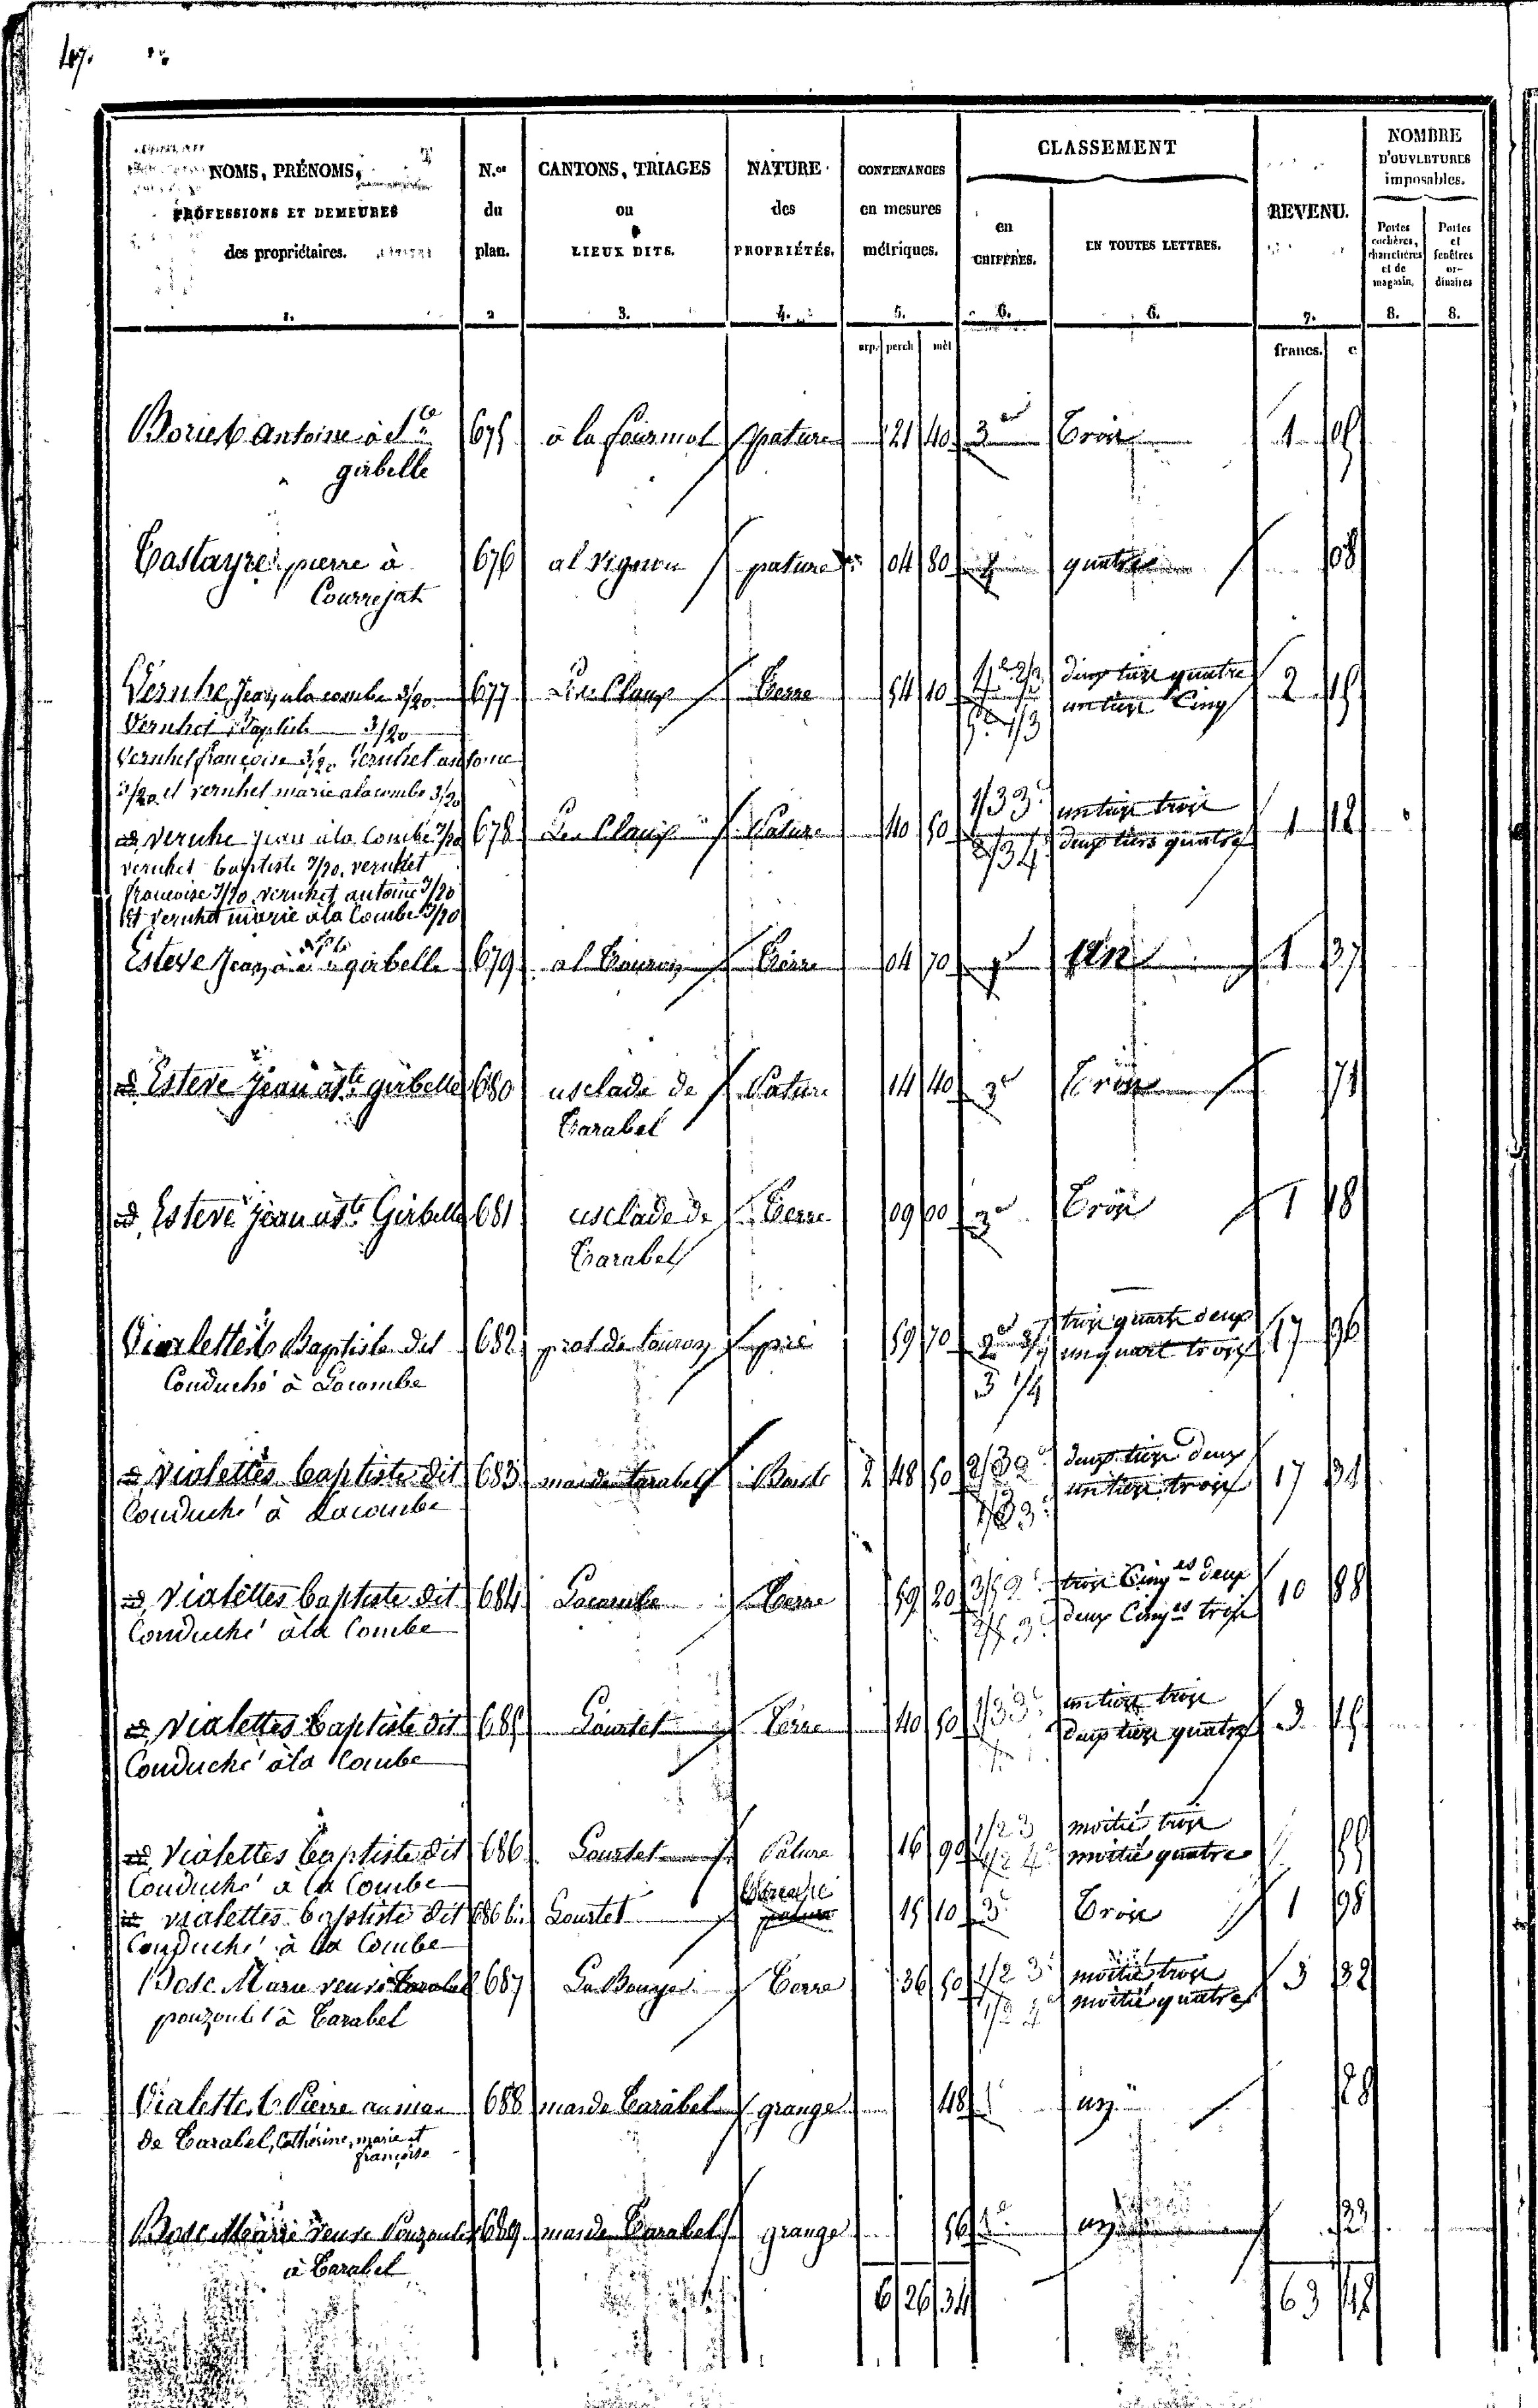 47.
NOMS, PRÉNOMS,
PROFESSIONS ET DEMEURES
des propriétaires.
1.
N.os
du
plan.
2
CANTONS, TRIAGES
ou
LIEUX DITS.
3.
NATURE
des
PROPRIÉTÉS.
4.
CONTENANCES
en mesures
métriques.
5.
CLASSEMENT
en
CHIFFRES.
6.
EN TOUTES LETTRES.
6.
REVENU.
7.
NOMBRE
D'OUVERTURES
imposables.
Portes cochères, charretières et de magasin.
8.
Portes et fenêtres or- dinaires
8.
arp. perch mèt francs. c
Antoine à Ste 675 à la pature 21 40 3 Trois 1 05
girbelle
pierre à 676 al pature 04 80 4 quatre 08
Courrejat
Vernhe Jean à la combe 3/20 677 Les Claux Terre 54 10 4e 2/3 deux tiers quatre 2 15
Vernhet Baptiste 3/20 5e 1/3 un tiers Cinq
Vernhet françoise 3/20 Vernhet antoine
3/20 et vernhet marie a la combe 3/20
id Vernhe jean à la Combe 3/20 678 Les Claux Pature 40 50 1/3 3e un tiers trois 1 12
vernhet baptiste 3/20, vernhet 2/3 4e deux tiers quatre
francoise 3/20, vernhet antoine 3/20
et vernhet marie à la Combe 3/20
Esteve Jean à Ste girbelle 679 al Terre 04 70 1 un 1 37
id Esteve jean à Ste girbelle 680 usclade de Pature 14 40 3e trois 71
Carabel
id, Esteve jean à Ste Girbelle 681 usclade de Terre 09 00 3e Trois 1 18
Carabel
Baptiste dit 682 prat de pré 59 70 2e 3/4 trois quarts deux 17 96
Conduché à Lacombe 3 1/4 un quart trois
id Vialettes baptiste dit 683 mas de Carabel 2 48 50 2/3 2e deux tiers deux 17 34
Conduché à Lacombe 1/3 3e un tiers trois
id, Vialettes baptiste dit 684 Lacombe Terre 59 20 3/5 2e trois Cinqes deux 10 88
Conduché à la Combe 2/5 3e deux Cinqes trois
id, Vialettes baptiste dit 685 Gourtet Terre 40 50 1/3 3e un tiers trois 3 15
Conduché à la Combe deux tiers quatre
id, Vialettes baptiste dit 686 Gourtet Pature 16 90 1/2 3 moitié trois 55
Conduché à la Combe 1/2 4e moitié quatre
id vialettes baptiste dit 686 bis Gourtet pature 15 10 3e Trois 1 98
Conduché à la Combe
Bosc Marie veuve 687 Terre 36 50 1/2 3e moitié trois 3 32
à Carabel 1/2 4e moitié quatre
Pierre au mas 688 mas de Carabel grange 48 1 un 28
de Carabel, Catherine, marie et
françoise
Bosc Marie veuve 689 mas de Carabel grange 56 1 un 33
à Carabel
6 26 34 63 42